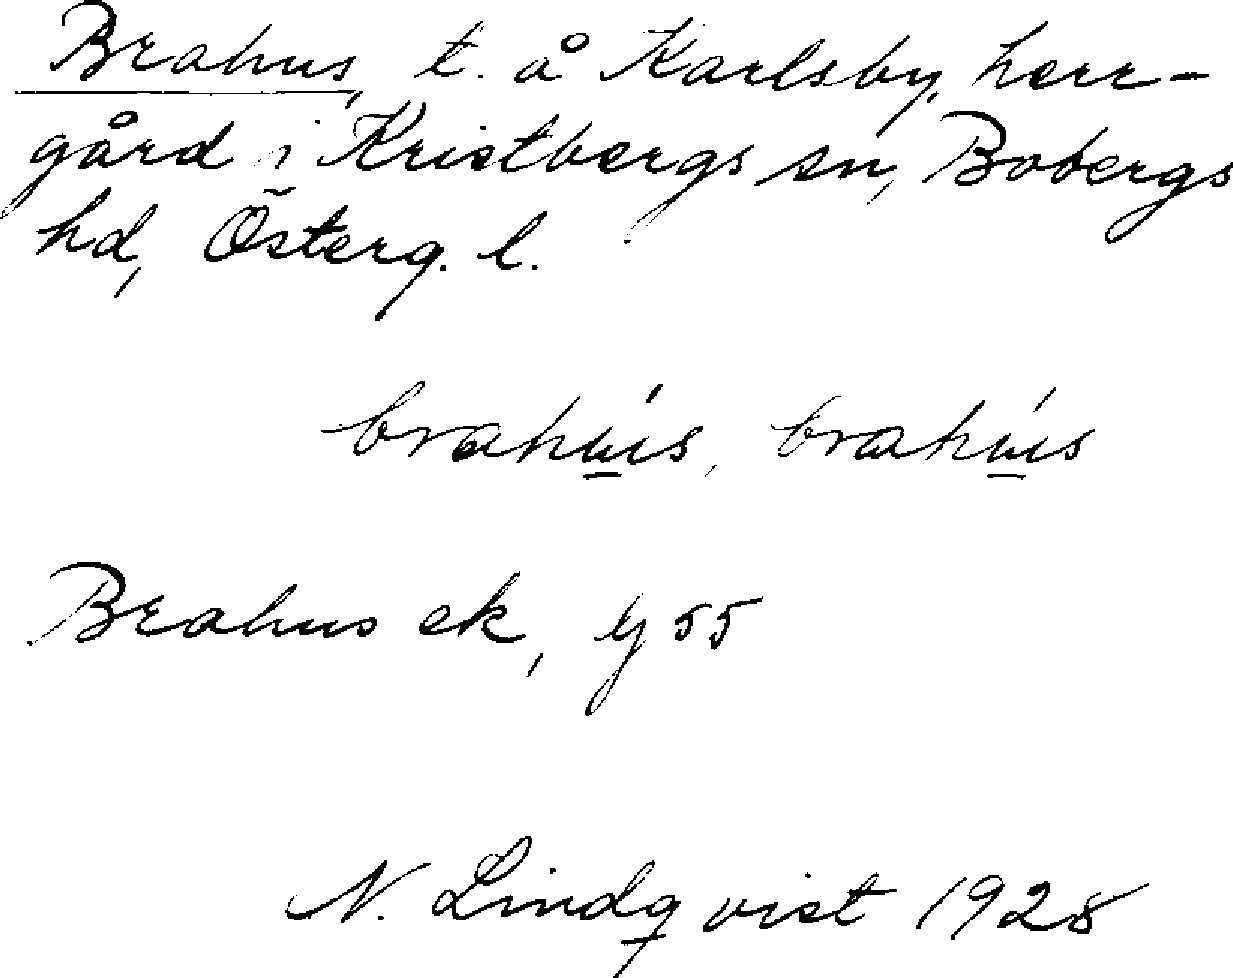 Brahus, t. å Karlsby, herr-
gård i Kristbergs sn, Bobergs
hd, Österg. l.
brahus, brahus
Brahus ek, 55
N. Lindqvist 1928